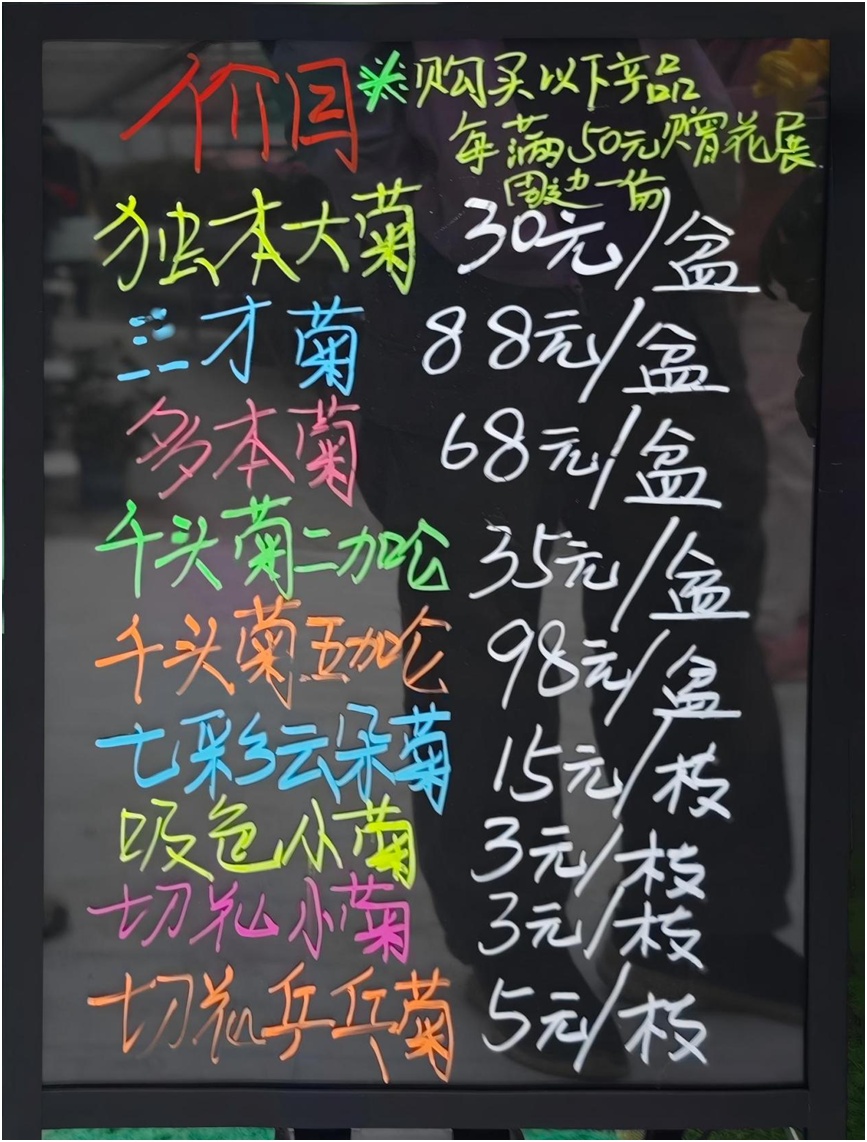 价目
※购买以下产品
每满50元赠花展
周边一份
独本大菊 30元/盆
三才菊 88元/盆
多本菊 68元/盆
千头菊二加仑 35元/盆
千头菊五加仑 98元/盆
七彩云朵菊 15元/枝
吸色小菊 3元/枝
切花小菊 3元/枝
切花乒乓菊 5元/枝